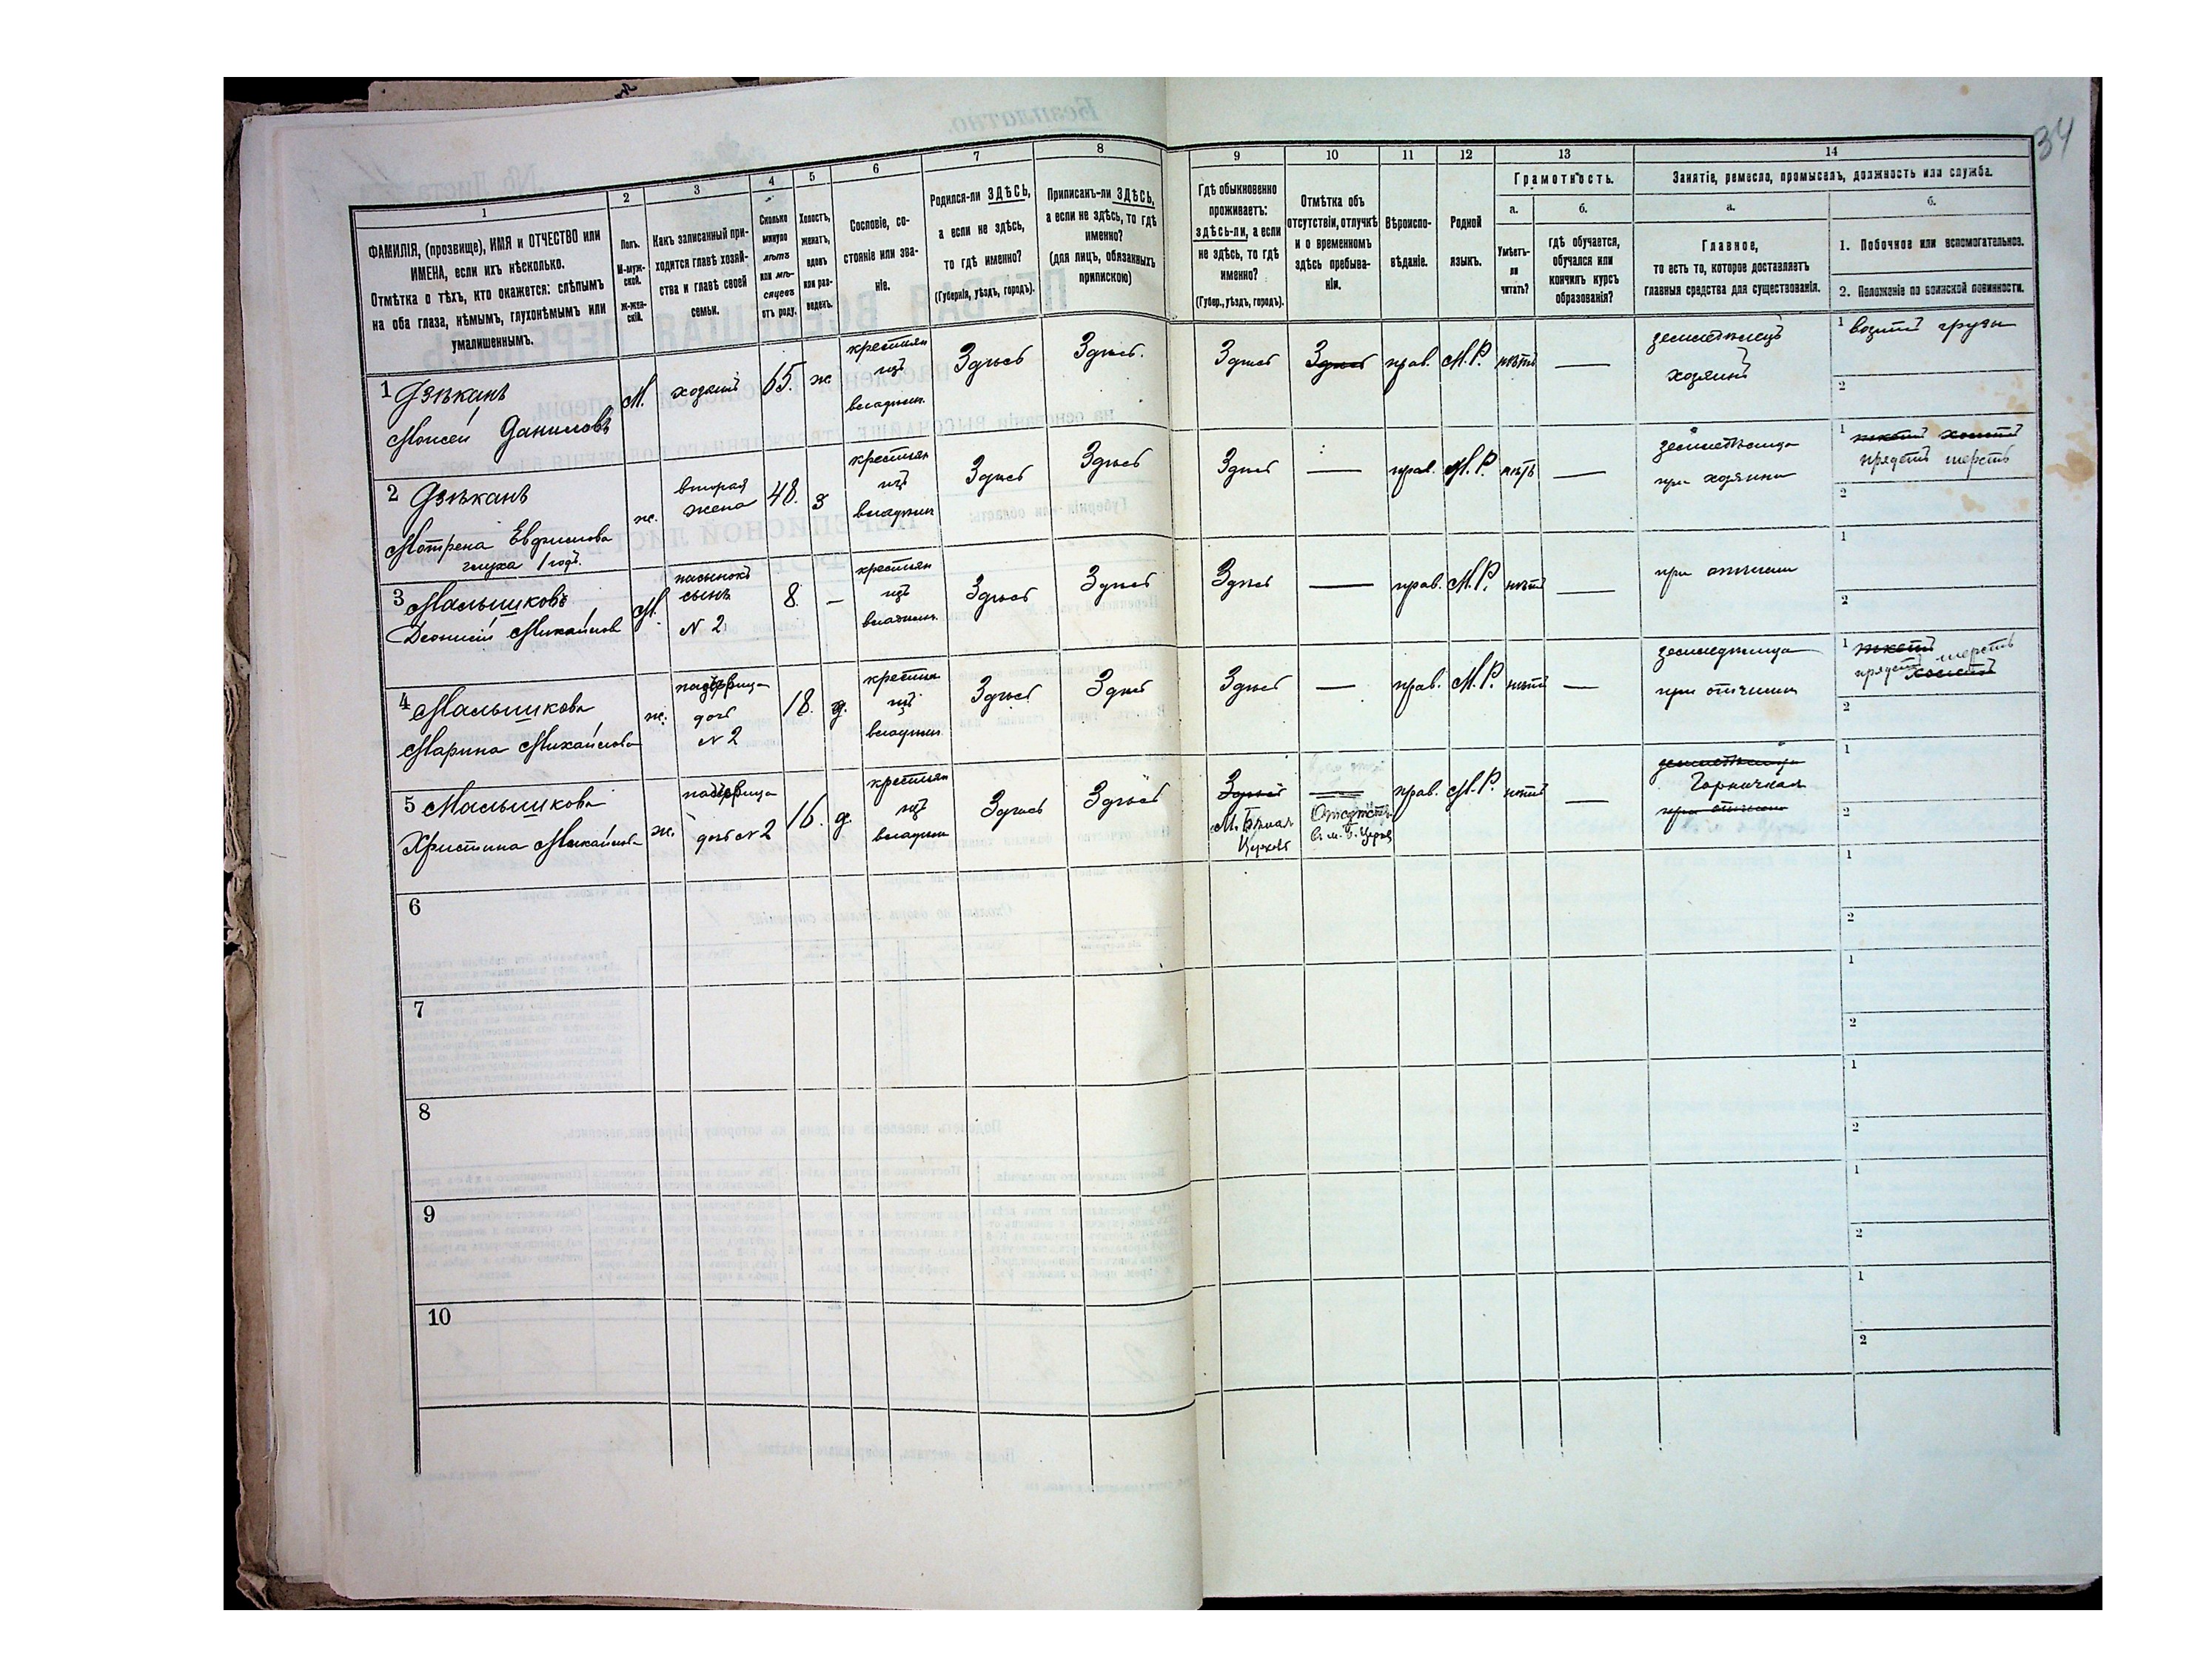 34
1 2 3 4 5 6 7 8 9 10 11 12 13 14
ФАМИЛІЯ, (прозвище), ИМЯ и ОТЧЕСТВО или
ИМЕНА, если ихъ нѣсколько.
Отмѣтка о тѣхъ, кто окажется: слѣпымъ
на оба глаза, нѣмымъ, глухонѣмымъ или
умалишеннымъ.
Полъ.
М-муж-
ской.
Ж-жен-
скій.
Какъ записанный при-
ходится главѣ хозяй-
ства и главѣ своей
семьи.
Сколько
минуло
лѣтъ
или мѣ-
сяцевъ
отъ роду.
Холостъ,
женатъ,
вдовъ
или раз-
веденъ.
Сословіе, со-
стояніе или зва-
ніе.
Родился-ли ЗДѢСЬ,
а если не здѣсь,
то гдѣ именно?
(Губернія, уѣздъ, городъ).
Приписанъ-ли ЗДѢСЬ,
а если не здѣсь, то гдѣ
именно?
(для лицъ, обязанныхъ
припискою)
Гдѣ обыкновенно
проживаетъ:
здѣсь-ли, а если
не здѣсь, то гдѣ
именно?
(Губер., уѣздъ, городъ).
Отмѣтка объ
отсутствіи, отлучкѣ
и о временномъ
здѣсь пребыва-
ніи.
Вѣроиспо-
вѣданіе.
Родной
языкъ.
Грамотность.
а. б.
Умѣетъ-
ли
читать?
гдѣ обучается,
обучался или
кончилъ курсъ
образованія?
Занятіе, ремесло, промыселъ, должность или служба.
а. б.
Главное,
то есть то, которое доставляетъ
главныя средства для существованія.
1. Побочное или вспомогательное.
2. Положеніе по воинской повинности.
1 Дзѣканъ
Моисей Даниловъ
М.
хозяинъ
65.
ж.
крестьян
изъ
владѣльч.
Здѣсь
Здѣсь.
Здѣсь
Здѣсь
прав.
М.Р.
нѣтъ
—
земледѣлецъ
хозяинъ
1 возитъ грузы
2
2 Дзѣканъ
Мотрена Евфимова
глуха 1 годъ.
ж.
вторая
жена
48.
з
крестьян
изъ
владѣльч
Здѣсь
Здѣсь
Здѣсь
—
прав.
М.Р.
нѣтъ
—
земледѣлица
при хозяинѣ
1 ткетъ холстъ
прядетъ шерсть
2
3 Малышковъ
Діонисій Михайлов
М.
пасынокъ
сынъ
N 2
8.
—
крестьян
изъ
владѣльч.
Здѣсь
Здѣсь
Здѣсь
—
прав.
М.Р.
нѣтъ
—
при отчимѣ
1
2
4 Малышкова
Марина Михайлова
ж.
падчерица
дочь
N 2
18.
д.
крестьян
изъ
владѣльч
Здѣсь
Здѣсь
Здѣсь
—
прав.
М.Р.
нѣтъ
—
земледѣлица
при отчимѣ
1 ткетъ
прядетъ шерсть
холстъ
2
5 Малышкова
Христина Михайлова
ж.
падчерица
дочь N 2
16.
д.
крестьян
изъ
владѣльч
Здѣсь
Здѣсь
Здѣсь
М. Бѣлая
Церковь
—
Отсутств.
въ м. Б. Церкв
прав.
М.Р.
нѣтъ
—
земледѣлица
Горничная
при отчимѣ
1
2
6
1
2
7
1
2
8
1
2
9
1
2
10
1
2